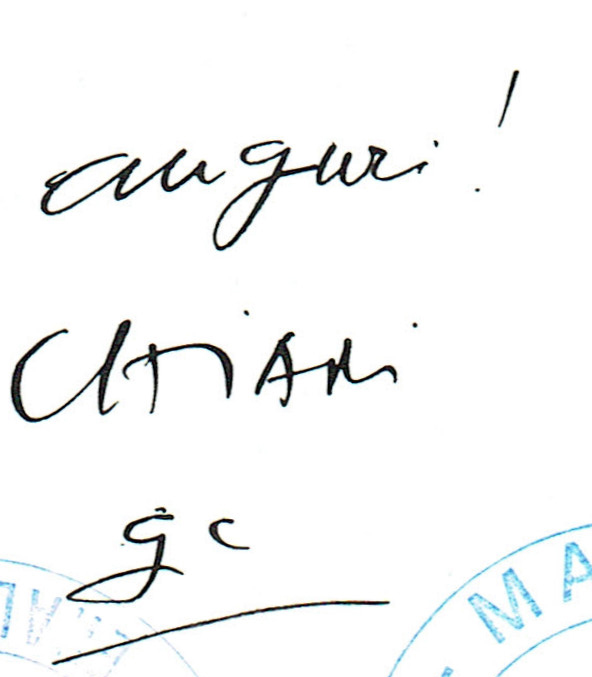 auguri!
CHiARi
gc
MA